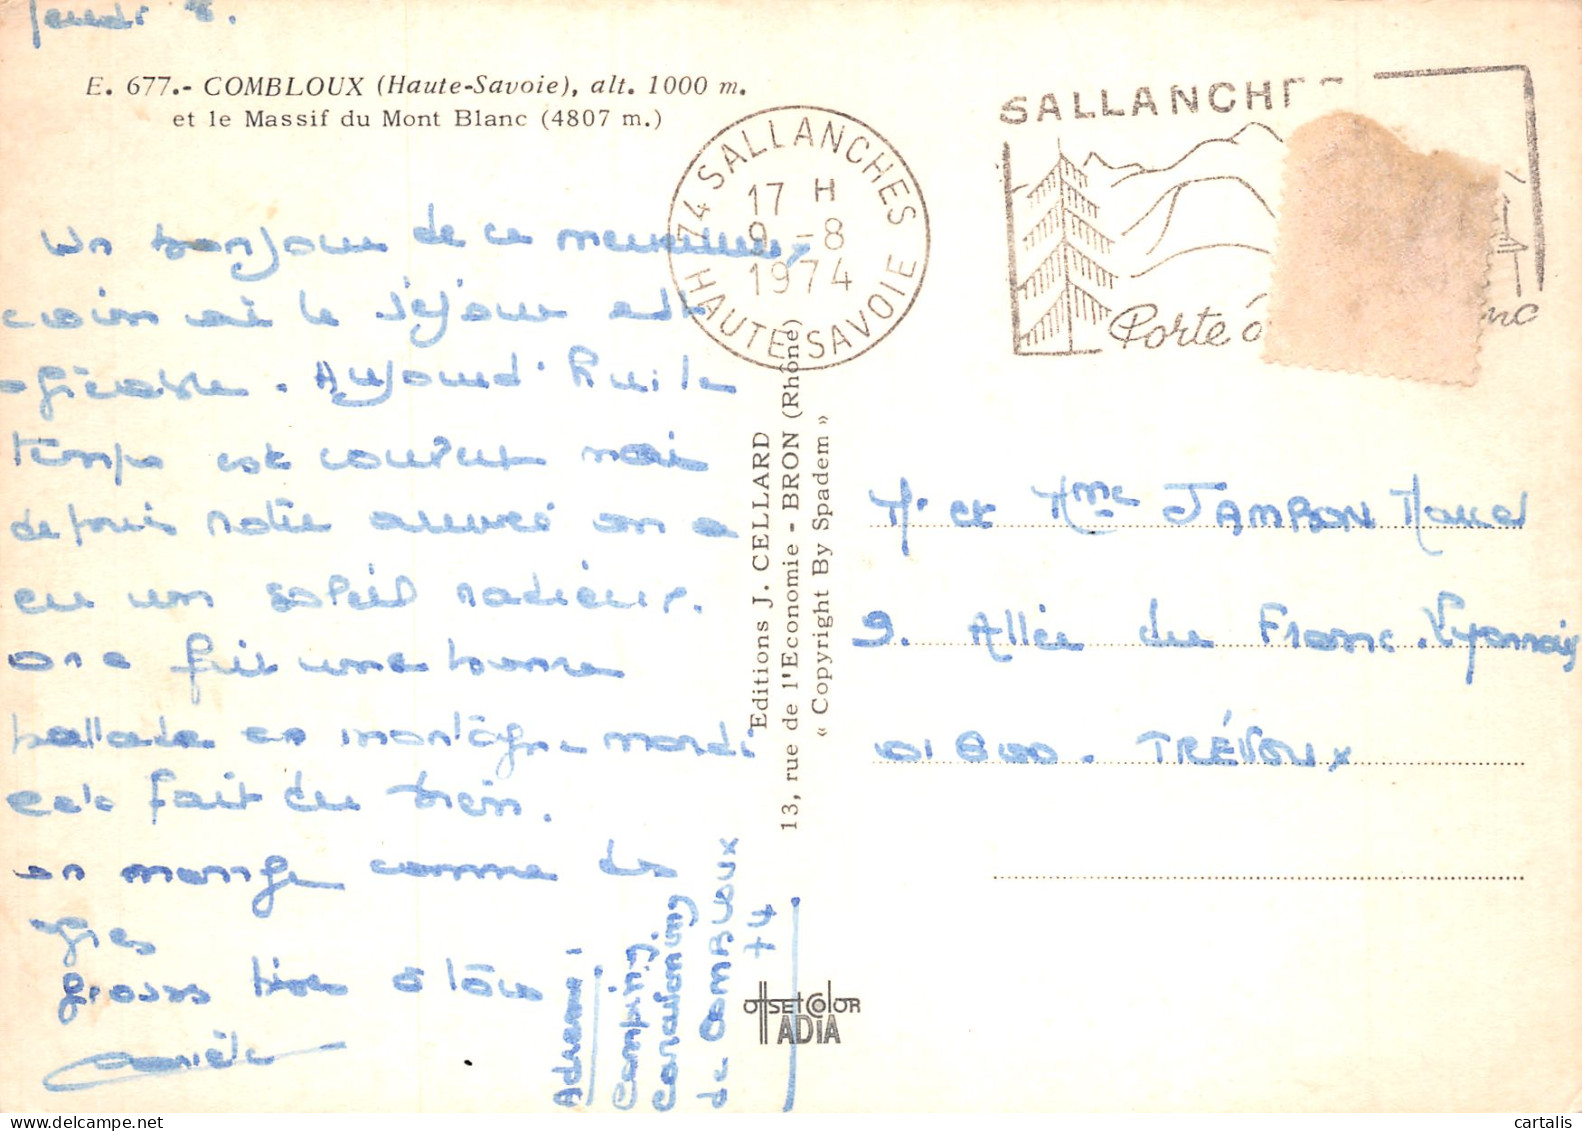 jeudi 8.
E. 677.- COMBLOUX (Haute-Savoie), alt. 1000 m.
et le Massif du Mont Blanc (4807 m.)
Un bonjour de ce merveilleux
coin où le séjour est
agréable. Aujourd'hui le
temps est couvert mais
depuis notre arrivée on a
eu un soleil radieux.
on a fait une bonne
ballade en montagne mardi
cela fait du bien.
on mange comme des
ogres
grosses bises à tous
Adresse:
Camping.
Caravaning
de COMBLOUX
74
74 SALLANCHES
17 H
9 -8
1974
HAUTE SAVOIE
SALLANCHES
Porte
nc
Editions J. CELLARD
13, rue de l'Economie - BRON (Rhône)
« Copyright By Spadem »
Mr et Mme JAMBON
9. Allée du Franc. Lyonnais
01600. TRÉVOUX
OFFSET COLOR
IADIA
cartalis